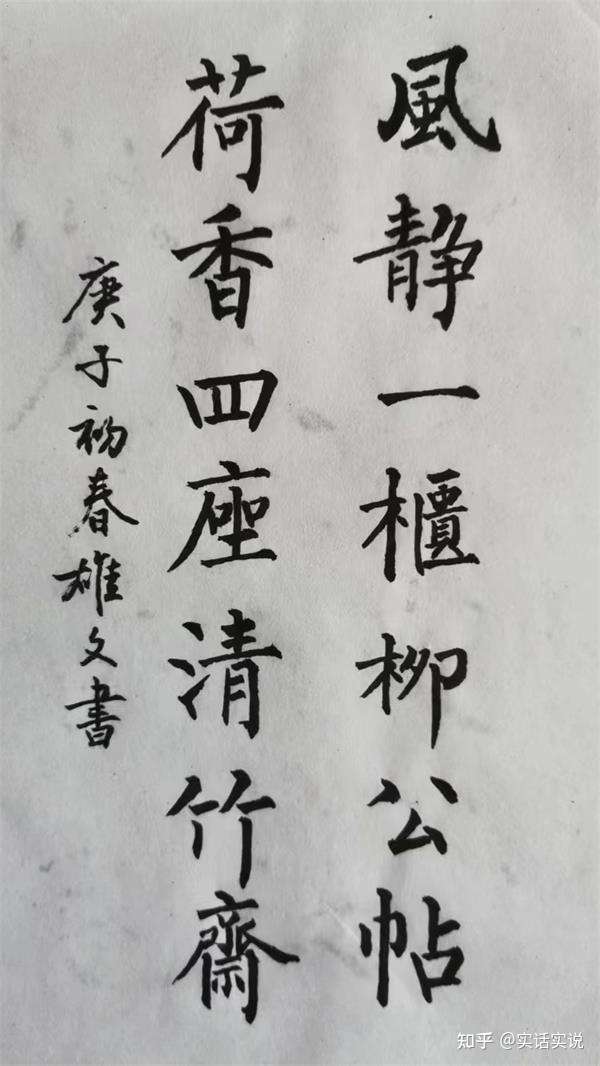 風静一櫃柳公帖
荷香四座清竹齋
庚子初春雄文書
知乎 @实话实说